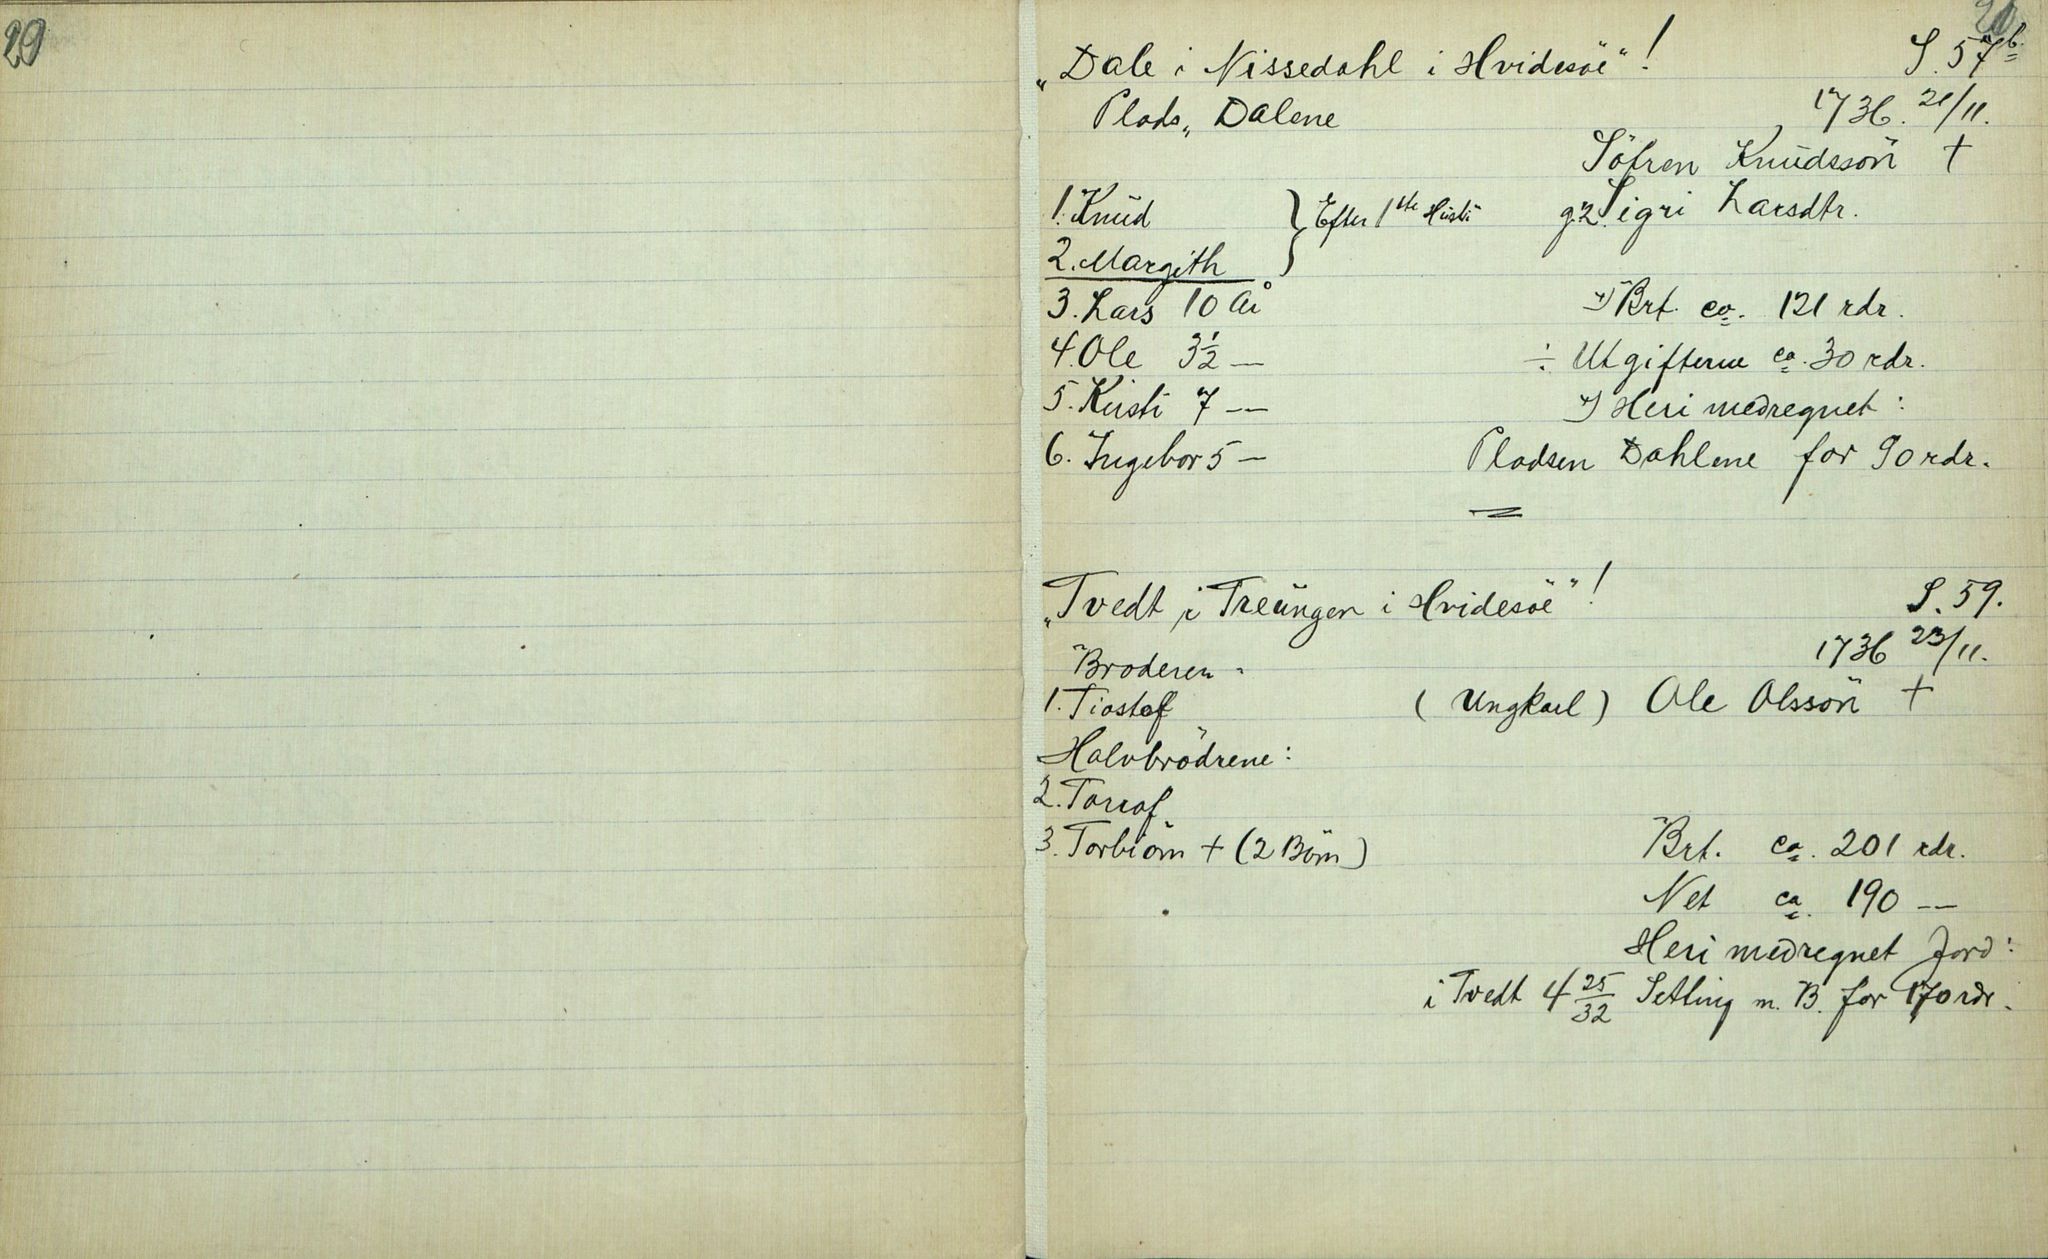 29
„Dale i Nissedahl i Hvidesöe"! S. 57b.
Plads „ Dalene 1736. 21/11.
Söfren Knudssön +
1. Knud } Efter 1ste Hustr. g.2. Sigri Larsdtr.
2. Margith
3. Lars 10 år *) Brt. ca. 121 rdr.
4. Ole 3 1/2 — ÷ Utgifterne ca. 30 rdr.
5. Kirsti 7 — *) Heri medregnet:
6. Ingebor 5 — Pladsen Dahlene for 90 rdr.
„Tvedt i Treungen i Hvidesöe"! S. 59.
1736 23/11.
Broderen
1. Tiostof (Ungkarl) Ole Olssön +
Halvbrödrene:
2. Tarrof
3. Torbiörn + (2 Börn) Brt. ca. 201 rdr.
Net ca. 190 —
Heri medregnet Jord:
i Tvedt 4 25/32 Setling m. B. for 170 rdr.